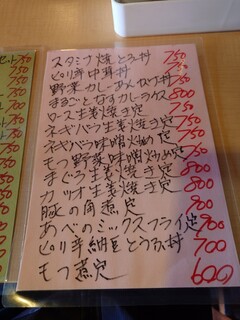 スタミナ焼とろろ丼 750
ピリ辛中華丼 750
野菜カレーあんかけ丼 750
まるごとなすカレーライス 800
ロース生姜焼き定 750
ネギバラ生姜焼き定 750
ネギバラ味噌炒め定 750
モツ野菜味噌炒め定 750
まぐろ生姜焼き定 800
カツオ生姜焼き定 800
豚の角煮定 900
あべのミックスフライ定 900
ピリ辛納豆とうふ丼 700
モツ煮定 600